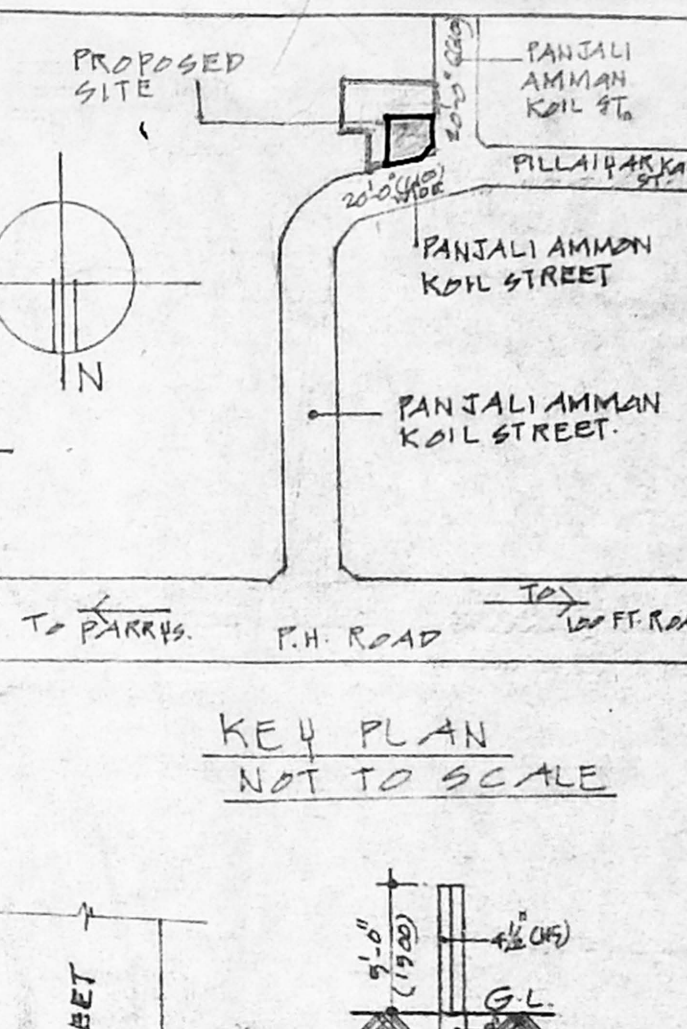 PROPOSED
SITE
20'-0"
PANJALI
AMMAN
KOIL ST.
PILLAIYAR KA
ST.
20'-0"
PANJALI AMMAN
KOIL STREET
N
PANJALI AMMAN
KOIL STREET.
TO PARRYS.
P.H. ROAD
TO
100 FT. ROA
KEY PLAN
NOT TO SCALE
5'-0"
(1500)
4½" (115)
G.L.
EET